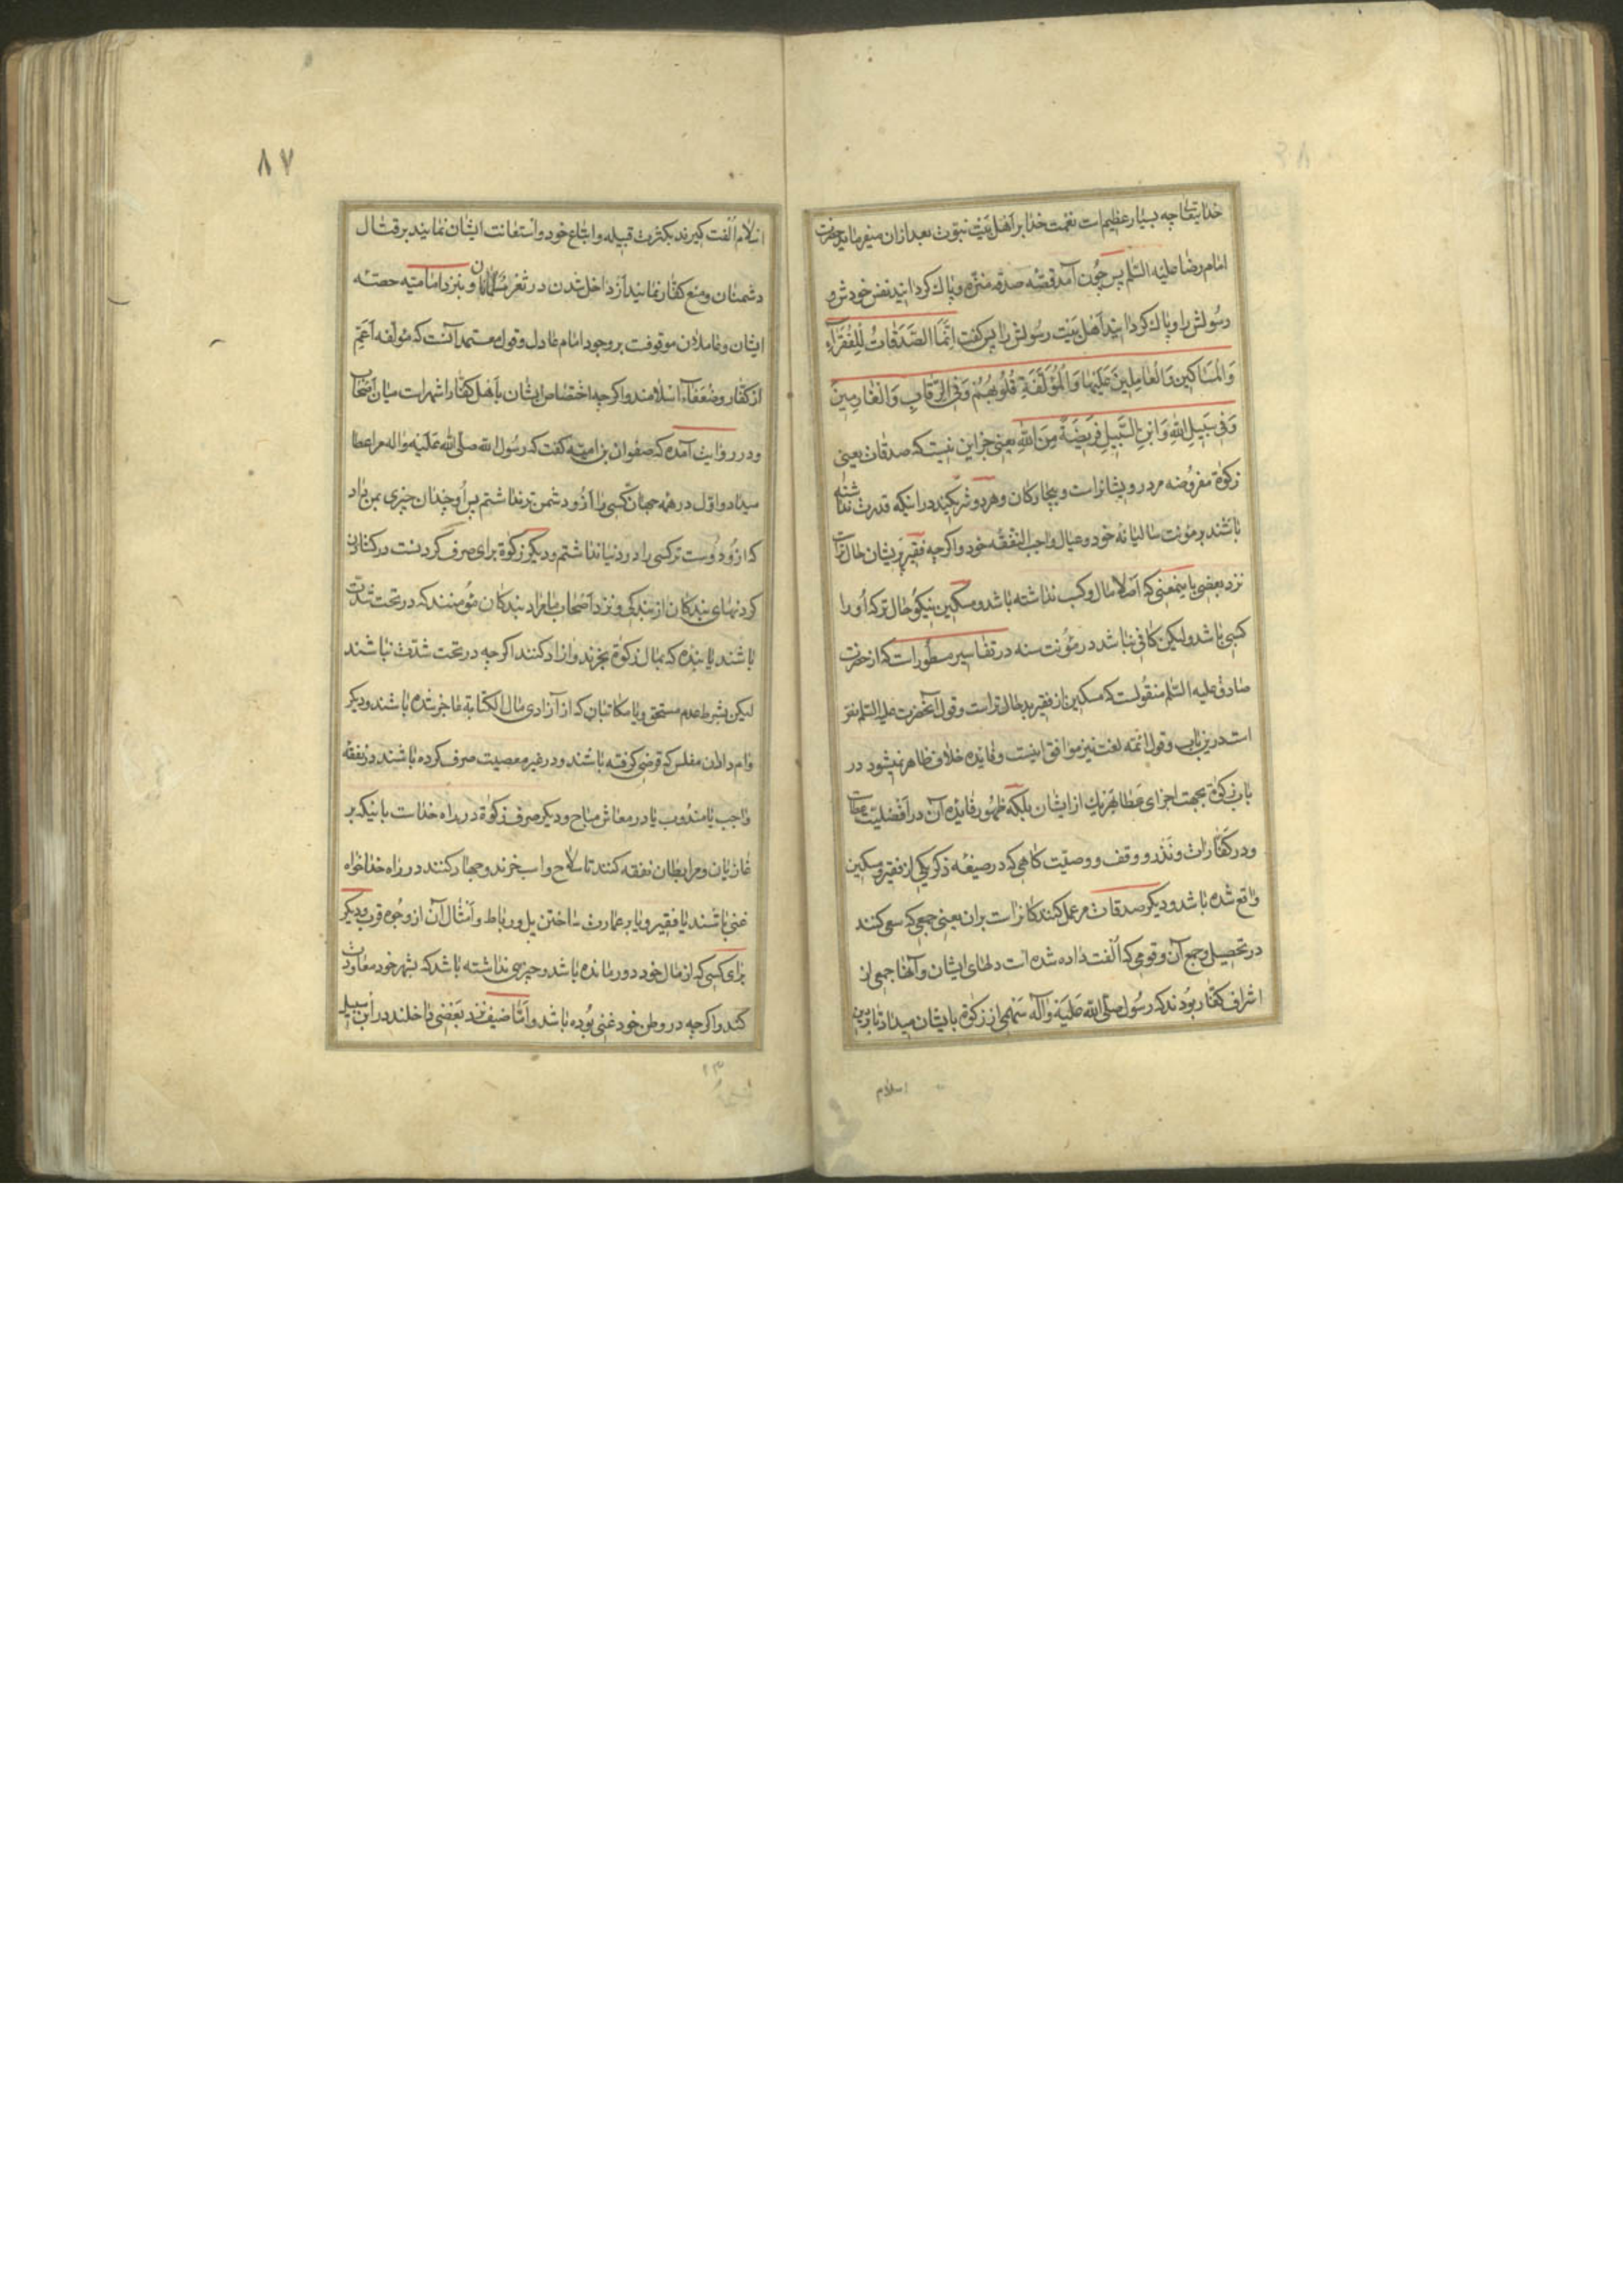 خدایتعالی چه بسیار عظیم است نعمت خدا بر اهل بیت نبوت بعد ازان میفرماید حضرت
امام رضا علیه السلم پس چون آمد قصّه صدقه منزّه و پاک کردانید نفس خودش و
رسولش را و پاک کردانید اهل بیت رسولش را پس کفت اِنَّمَا الصَّدَقَاتُ لِلْفُقَرَآءِ
وَالْمَسَاكِينِ وَالْعَامِلِينَ عَلَيْهَا وَالْمُؤَلَّفَةِ قُلُوبُهُمْ وَفِي الرِّقَابِ وَالْغَارِمِينَ
وَفِي سَبِيلِ اللّٰهِ وَابْنِ السَّبِيلِ فَرِيضَةً مِنَ اللّٰهِ یعنی جز این نیست که صدقات یعنی
زکوة مفروضه مر درویشانراست و بیچارکان و هر دو شریکند در اینکه قدرت نداشته
باشند بر مؤنت سالیانه خود و عیال واجب النفقه خود و اکرچه فقیر پریشان حال تراست
نزد بعضی باینمعنی که اصلا مال و کسب نداشته باشد و مسکین نیکو حال تر که او را
کسبی باشد ولیکن کافی نباشد در مؤنت سنه در تفاسیر مسطور است که از حضرت
صادق علیه السلم منقولست که مسکین از فقیر بد حال تر است و قول آنحضرت علیه السلم مفر
است درین باب و قول ائمه لغت نیز موافق اینست و فایده خلاف ظاهر نمیشود در
باب زکوة بجهت اجزای عطا بهر یک از ایشان بلکه ظهور فایده آن در افضلیت عطاست
و در کفارات و نذر و وقف و وصیّت کاهی که در صیغه ذکر یکی از فقیر و مسکین
واقع شده باشد و دیکر صدقات مر عمل کنندکانراست بران یعنی جمعی که سعی کنند
در تحصیل و جمع آن و قومی که الفت داده شده است دلهای ایشان و آنها جمعی از
اشراف کفار بودند که رسول صلی الله علیه و آله سهمی از زکوة بایشان میداد تا بدین
اسلام
۸۷
اسلام الفت کیرند بکثرت قبیله و اتباع خود و استعانت ایشان نمایند بر قتال
دشمنان و منع کفار نمایند از داخل شدن در ثغر مسلمانان و بنزد امامیّه حصّه
ایشان و عاملان موقوفست بر وجود امام عادل و قول معتمد آنست که مؤلّفه اعمّ
از کفار و ضعفاء اسلامند و اکرچه اختصاص ایشان باهل کفار اشهر است میان اصحاب
و در روایت آمده که صفوان بن امیّه کفت که رسول الله صلی الله علیه و اله مرا عطا
میداد و اول در همه جهان کسی را از او دشمن تر نداشتم پس او چندان چیزی بمن داد
که از او دوست تر کسی را در دنیا نداشتم و دیکر زکوة برای صرف کردنست در کشادن
کردنهای بندکان از بندکی و نزد اصحاب ما مراد بندکان مؤمنند که در تحت شدت
باشند یا بنده که بمال زکوة بخرند و ازاد کنند اکرچه در تحت شدت نباشند
لیکن بشرط عدم مستحق و یا مکاتبان که از آزادی مال الکتابة عاجز شده باشند و دیکر
وام داران مفلس که قرضی کرفته باشند و در غیر معصیت صرف کرده باشند در نفقه
واجب یا مندوب یا در معاش مباح و دیکر صرف زکوة در راه خداست بانیکه بر
غازیان و مرابطان نفقه کنند تا سلاح و اسب خرند و جهاد کنند در راه خدا خواه
غنی باشند یا فقیر و یا بر عمارت ساختن پل و رباط و امثال آن از وجوه قرب و دیکر
برای کسی که از مال خود دور مانده باشد و چیزی نداشته باشد که بشهر خود معاودت
کند و اکرچه در وطن خود غنی بوده باشد و امّا ضیف نزد بعضی داخلند در ابن سبیل